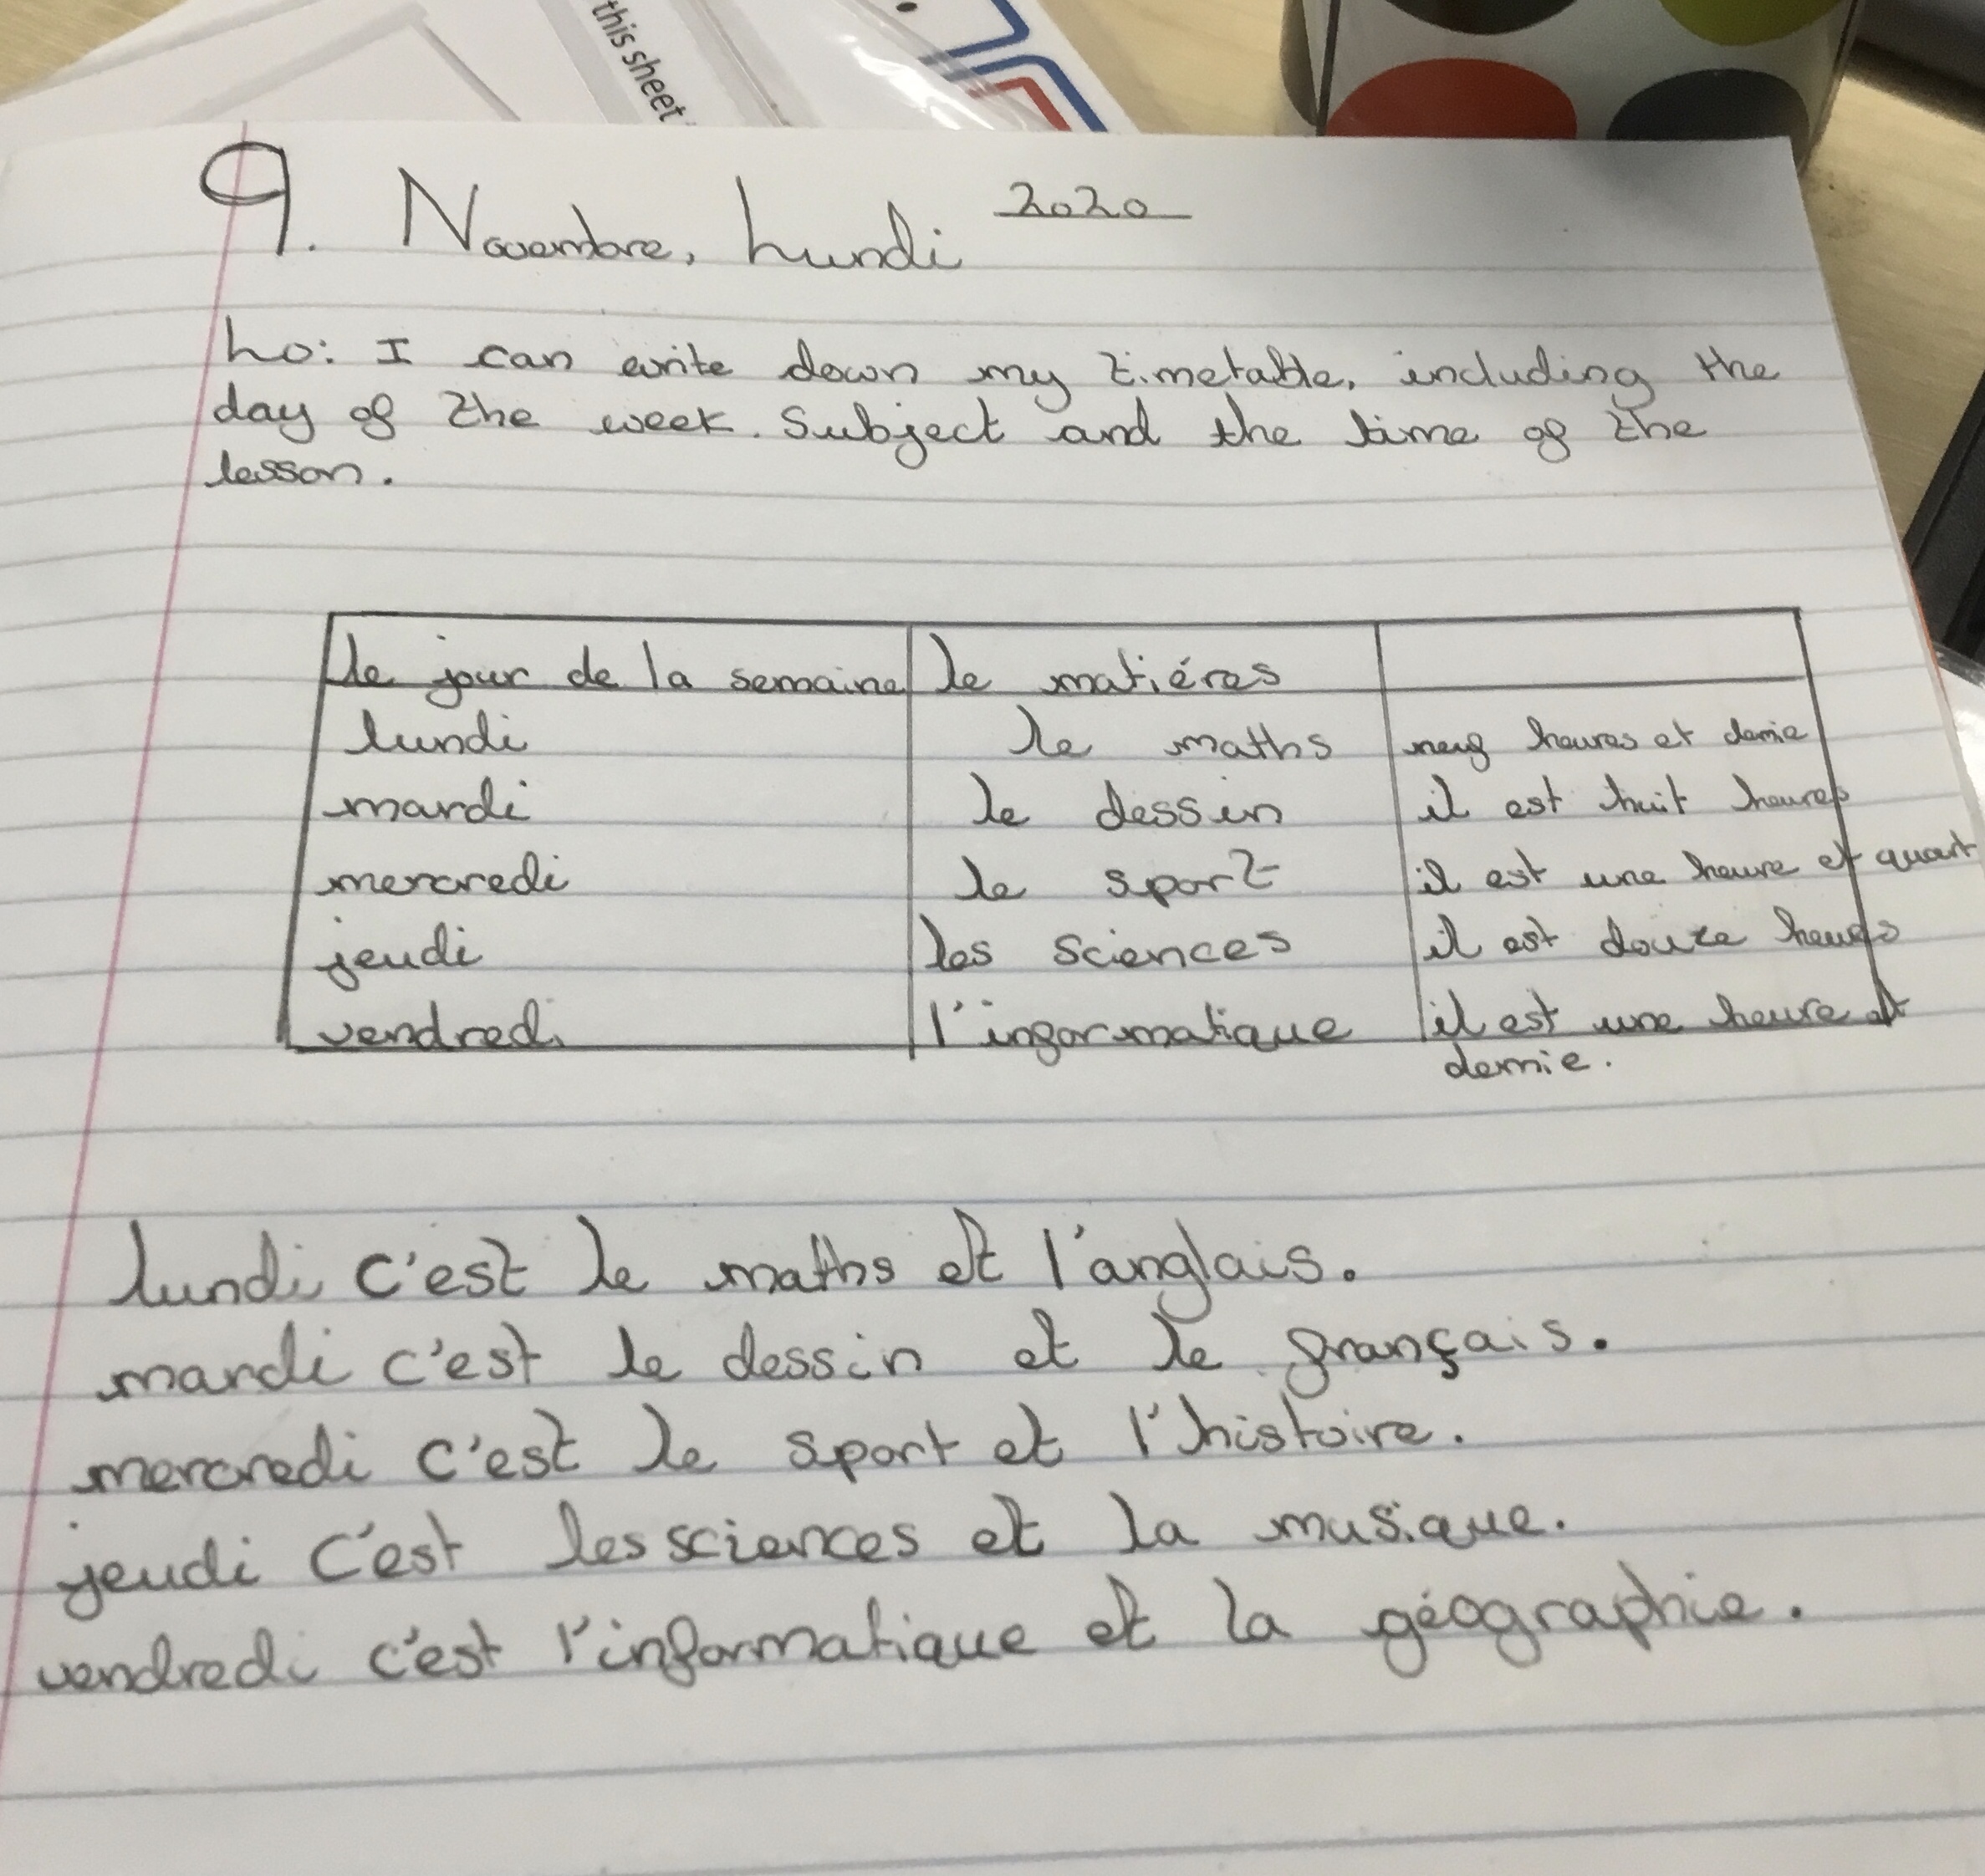 this sheet
9. Novembre, Lundi 2020
Lo: I can write down my timetable, including the
day of the week. Subject and the time of the
lesson.
le jour de la semaine le matiéres
lundi le maths neuf heures et demie
mardi le dessin il est huit heures
mercredi le sport il est une heure et quart
jeudi les sciences il est douze heures
vendredi l'informatique il est une heure et
demie.
lundi c'est le maths et l'anglais.
mardi c'est le dessin et le français.
mercredi c'est le sport et l'histoire.
jeudi c'est les sciences et la musique.
vendredi c'est l'informatique et la géographie.